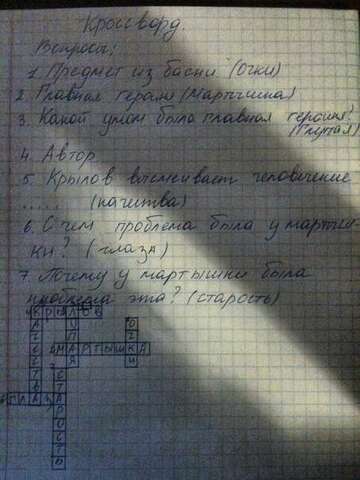 Кроссворд.
Вопросы:
1. Предмет из басни (Очки)
2. Главная героиня (Мартышка)
3. Какой умом была главная героиня?
(Глупая)
4. Автор
5. Крылов высмеивает человечекие
..... (качества)
6. С чем проблема была у мартыш
ки? (глаза)
7. Почему у мартышки была
проблема эта? (старость)
КРЫЛОВ
КАЧЕСТВА
ГЛУПАЯ
ОЧКИ
МАРТЫШКА
ГЛАЗА
СТАРОСТЬ